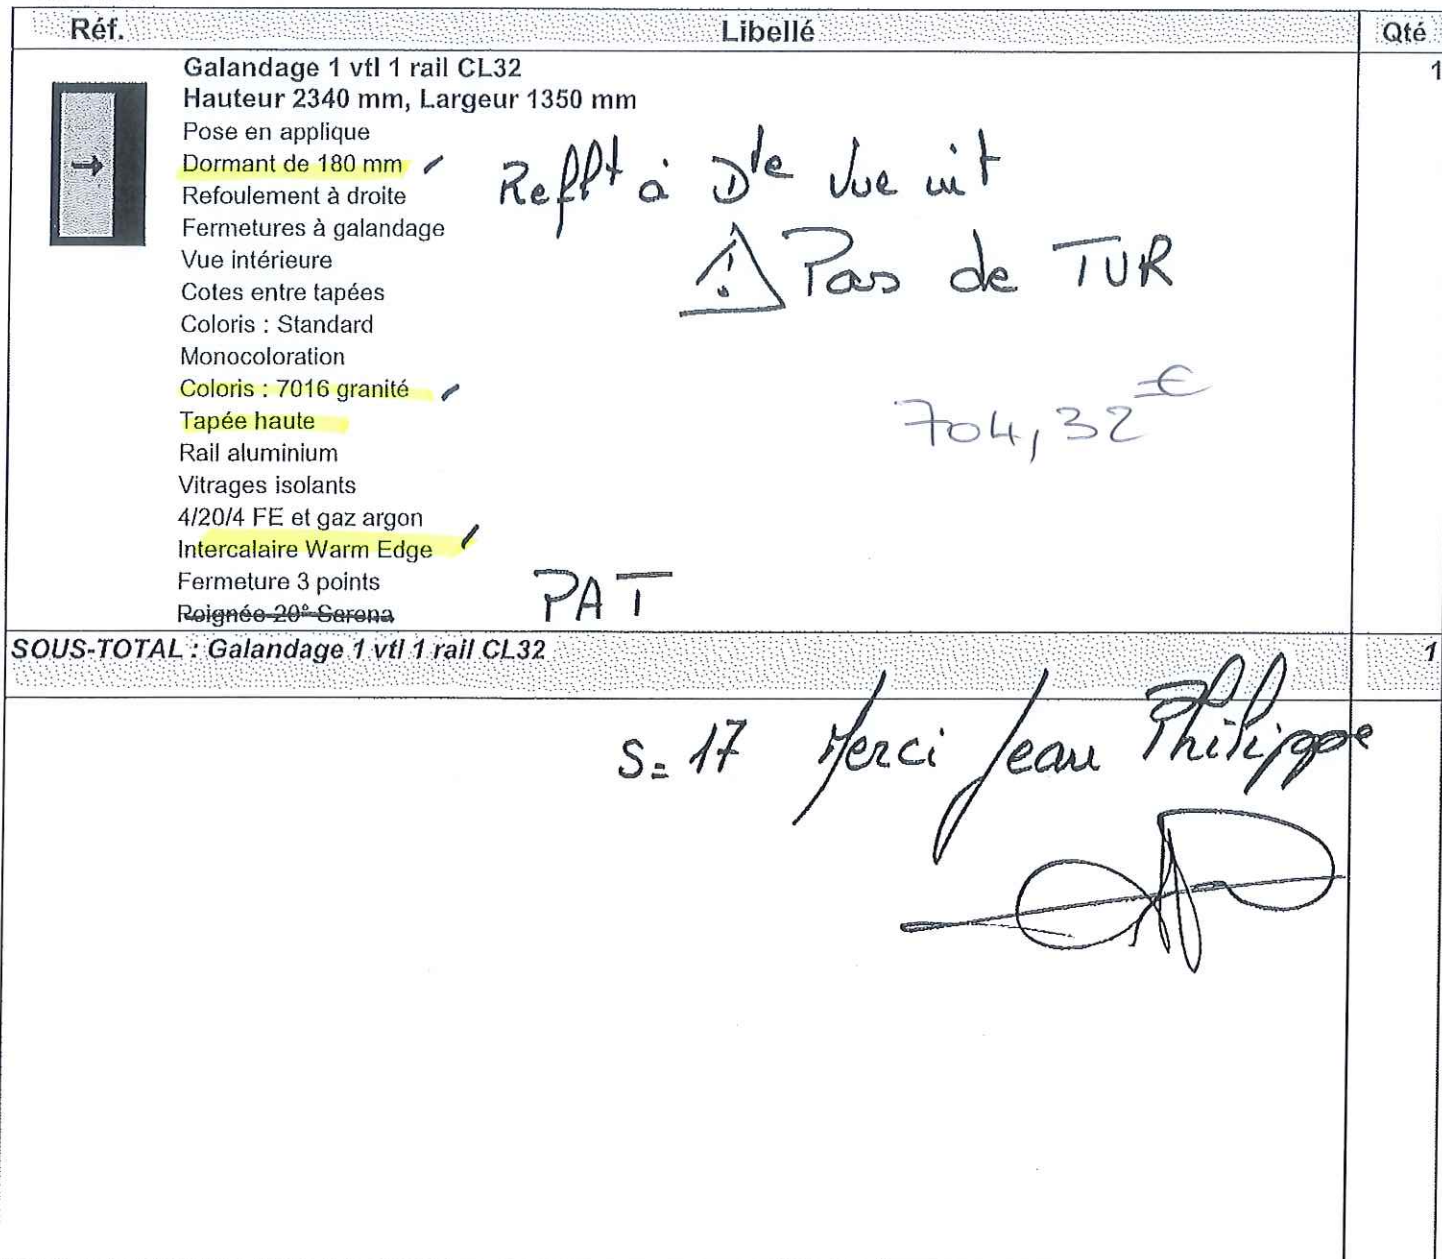 Réf. Libellé Qté
Galandage 1 vtl 1 rail CL32 1
Hauteur 2340 mm, Largeur 1350 mm
Pose en applique
Dormant de 180 mm
Refoulement à droite
Reflt à Dte Vue int
Fermetures à galandage
Vue intérieure
⚠ Pas de TUR
Cotes entre tapées
Coloris : Standard
Monocoloration
Coloris : 7016 granité
704,32 €
Tapée haute
Rail aluminium
Vitrages isolants
4/20/4 FE et gaz argon
Intercalaire Warm Edge
Fermeture 3 points
PAT
Poignée 20° Sarena
SOUS-TOTAL : Galandage 1 vtl 1 rail CL32 1
S = 17 Merci Jean Philippe